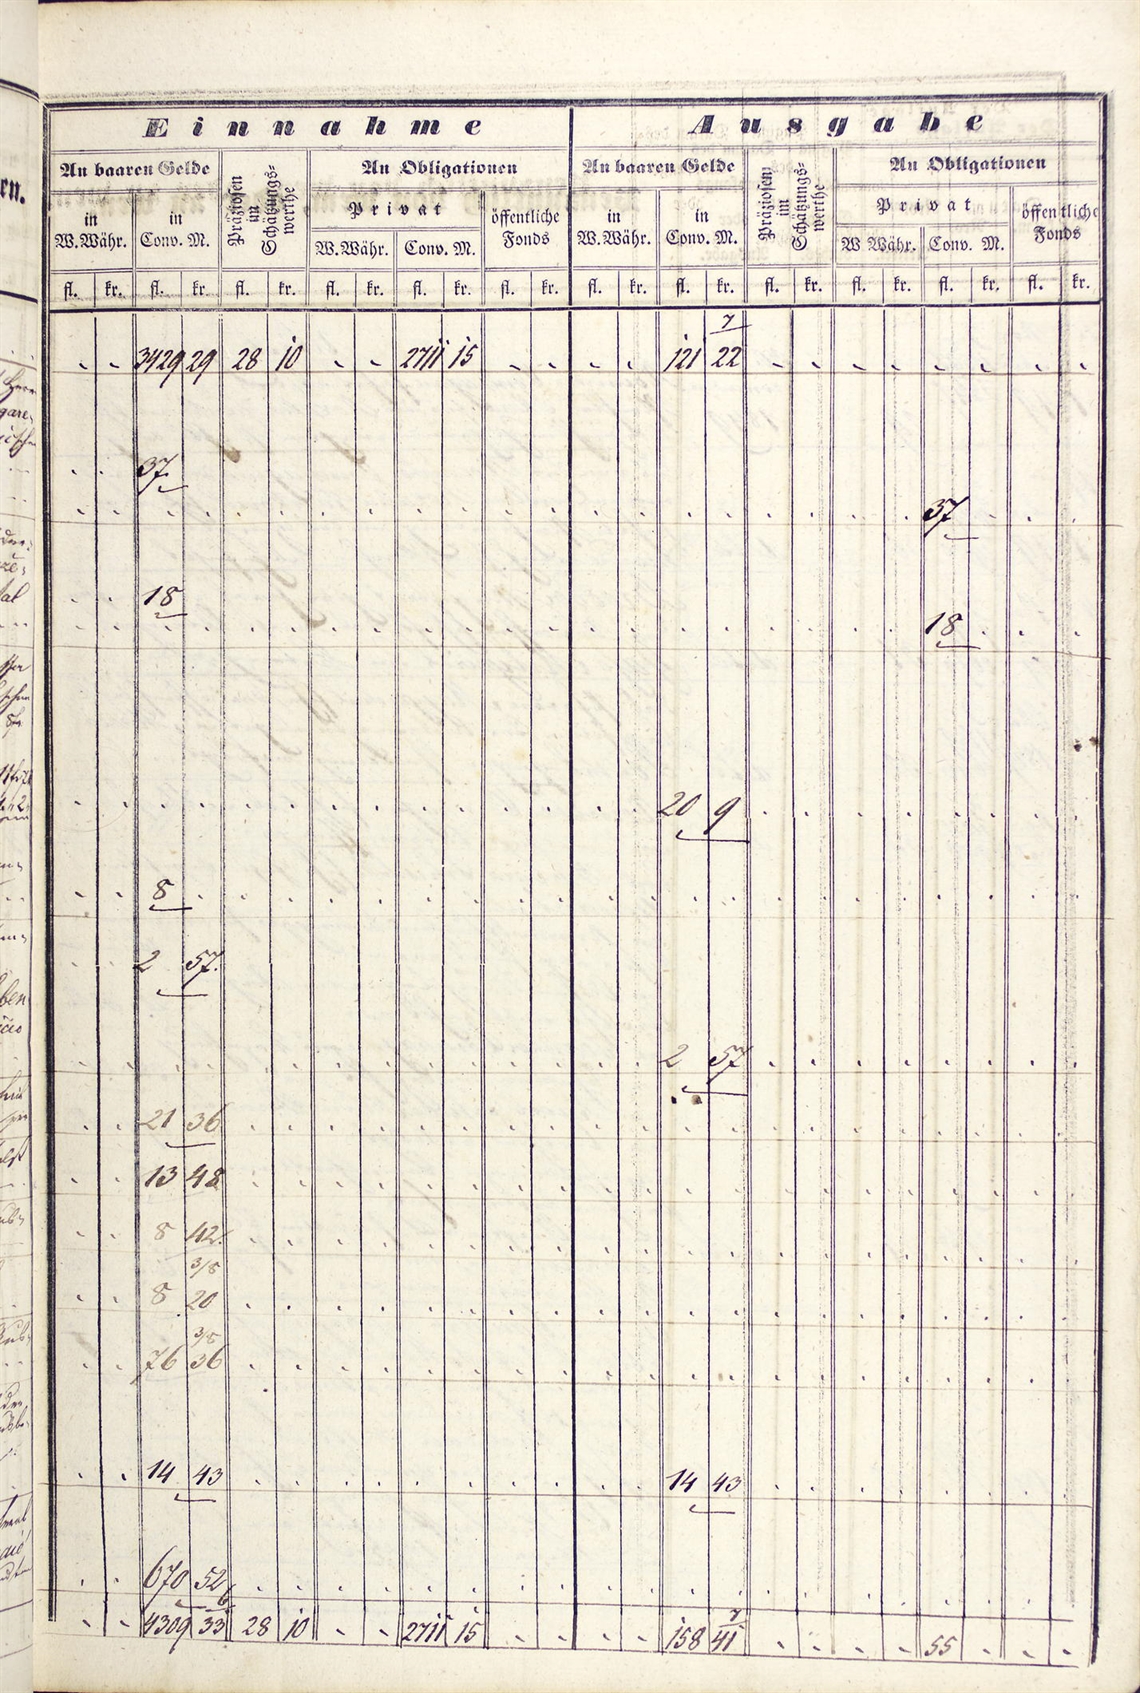 Einnahme Ausgabe
An baaren Gelde Präziosen im Schätzungswerthe An Obligationen An baaren Gelde Präziosen im Schätzungswerthe An Obligationen
Privat öffentliche Fonds Privat öffentliche Fonds
in W. Währ. in Conv. M. W. Währ. Conv. M. in W. Währ. in Conv. M. W. Währ. Conv. M.
fl. kr. fl. kr. fl. kr. fl. kr. fl. kr. fl. kr. fl. kr. fl. kr. fl. kr. fl. kr. fl. kr. fl. kr.
7
3429 29 28 10 2711 15 121 22
37
37
18
18
20 9
8
2 57
2 57
21 36
13 48
8 42
3/8
8 20
3/8
76 36
14 43 14 43
670 52
6 7
4309 33 28 10 2711 15 158 41 55